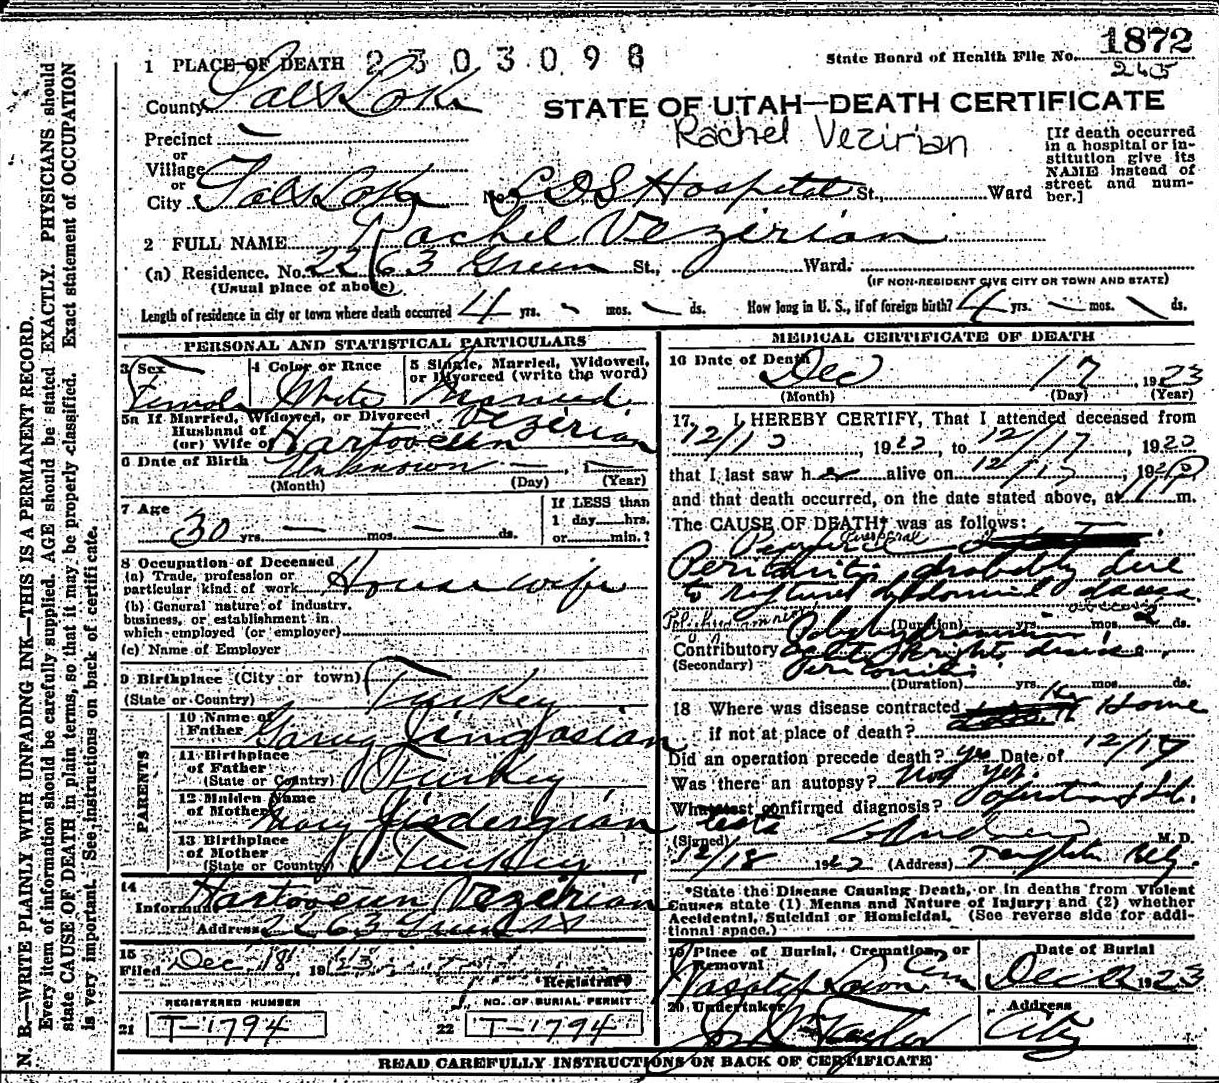 N. B.—WRITE PLAINLY WITH UNFADING INK—THIS IS A PERMANENT RECORD.
Every item of information should be carefully supplied. AGE should be stated EXACTLY. PHYSICIANS should
state CAUSE OF DEATH in plain terms, so that it may be properly classified. Exact statement of OCCUPATION
is very important. See instructions on back of certificate.
1 PLACE OF DEATH 2303098
State Board of Health File No. 1872
245
County Salt Lake
STATE OF UTAH—DEATH CERTIFICATE
Rachel Vezirian
Precinct —
or
Village
or
City Salt Lake No. LDS Hospital St., Ward
[If death occurred
in a hospital or in-
stitution give its
NAME instead of
street and num-
ber.]
2 FULL NAME Rachel Vezirian
(a) Residence. No. 2263 Green St., Ward.
(Usual place of abode)
(IF NON-RESIDENT GIVE CITY OR TOWN AND STATE)
Length of residence in city or town where death occurred 4 yrs. - mos. - ds. How long in U. S., if of foreign birth? 4 yrs. - mos. \ ds.
PERSONAL AND STATISTICAL PARTICULARS
3 Sex Female
4 Color or Race White
5 Single, Married, Widowed,
or Divorced (write the word)
Married
5a If Married, Widowed, or Divorced
Husband of
(or) Wife of Hartoveun Vezirian
6 Date of Birth Unknown — , 1—
(Month) (Day) (Year)
7 Age
30 yrs. — mos. — ds.
If LESS than
1 day hrs.
or min.?
8 Occupation of Deceased
(a) Trade, profession or
particular kind of work Housewife
(b) General nature of industry,
business, or establishment in
which employed (or employer)
(c) Name of Employer
9 Birthplace (City or town)
(State or Country) Turkey
PARENTS
10 Name of
Father
11 Birthplace
of Father
(State or Country) Turkey
12 Maiden Name
of Mother
13 Birthplace
of Mother
(State or Country) Turkey
14
Informant Hartoveun Vezirian
Address 2263 Green St
15
Filed Dec 18, 1923
Registrar
REGISTERED NUMBER
21 T-1794
NO. OF BURIAL PERMIT
22 T-1794
MEDICAL CERTIFICATE OF DEATH
16 Date of Death
Dec 17, 1923
(Month) (Day) (Year)
17. I HEREBY CERTIFY, That I attended deceased from
12/13, 1923, to 12/17, 1923
that I last saw her alive on 12/17, 192
and that death occurred, on the date stated above, at m.
The CAUSE OF DEATH* was as follows:
puerperal
Peritonitis probably due
to ruptured abdominal
abscess
(Duration) yrs. - mos. 2 ds.
Contributory
(Secondary) acute bright disease.
Peritonitis
(Duration) yrs. mos. ds.
18 Where was disease contracted Home
if not at place of death?
Did an operation precede death? yes Date of 12/17
Was there an autopsy?
What test confirmed diagnosis?
(Signed) M. D.
12/18 1923 (Address) Templeton Bldg.
*State the Disease Causing Death, or in deaths from Violent
Causes state (1) Means and Nature of Injury; and (2) whether
Accidental, Suicidal or Homicidal. (See reverse side for addi-
tional space.)
19 Place of Burial, Cremation, or
Removal
Wasatch Lawn Cem
Date of Burial
Dec 22 1923
20 Undertaker
Taylor
Address
City
READ CAREFULLY INSTRUCTIONS ON BACK OF CERTIFICATE